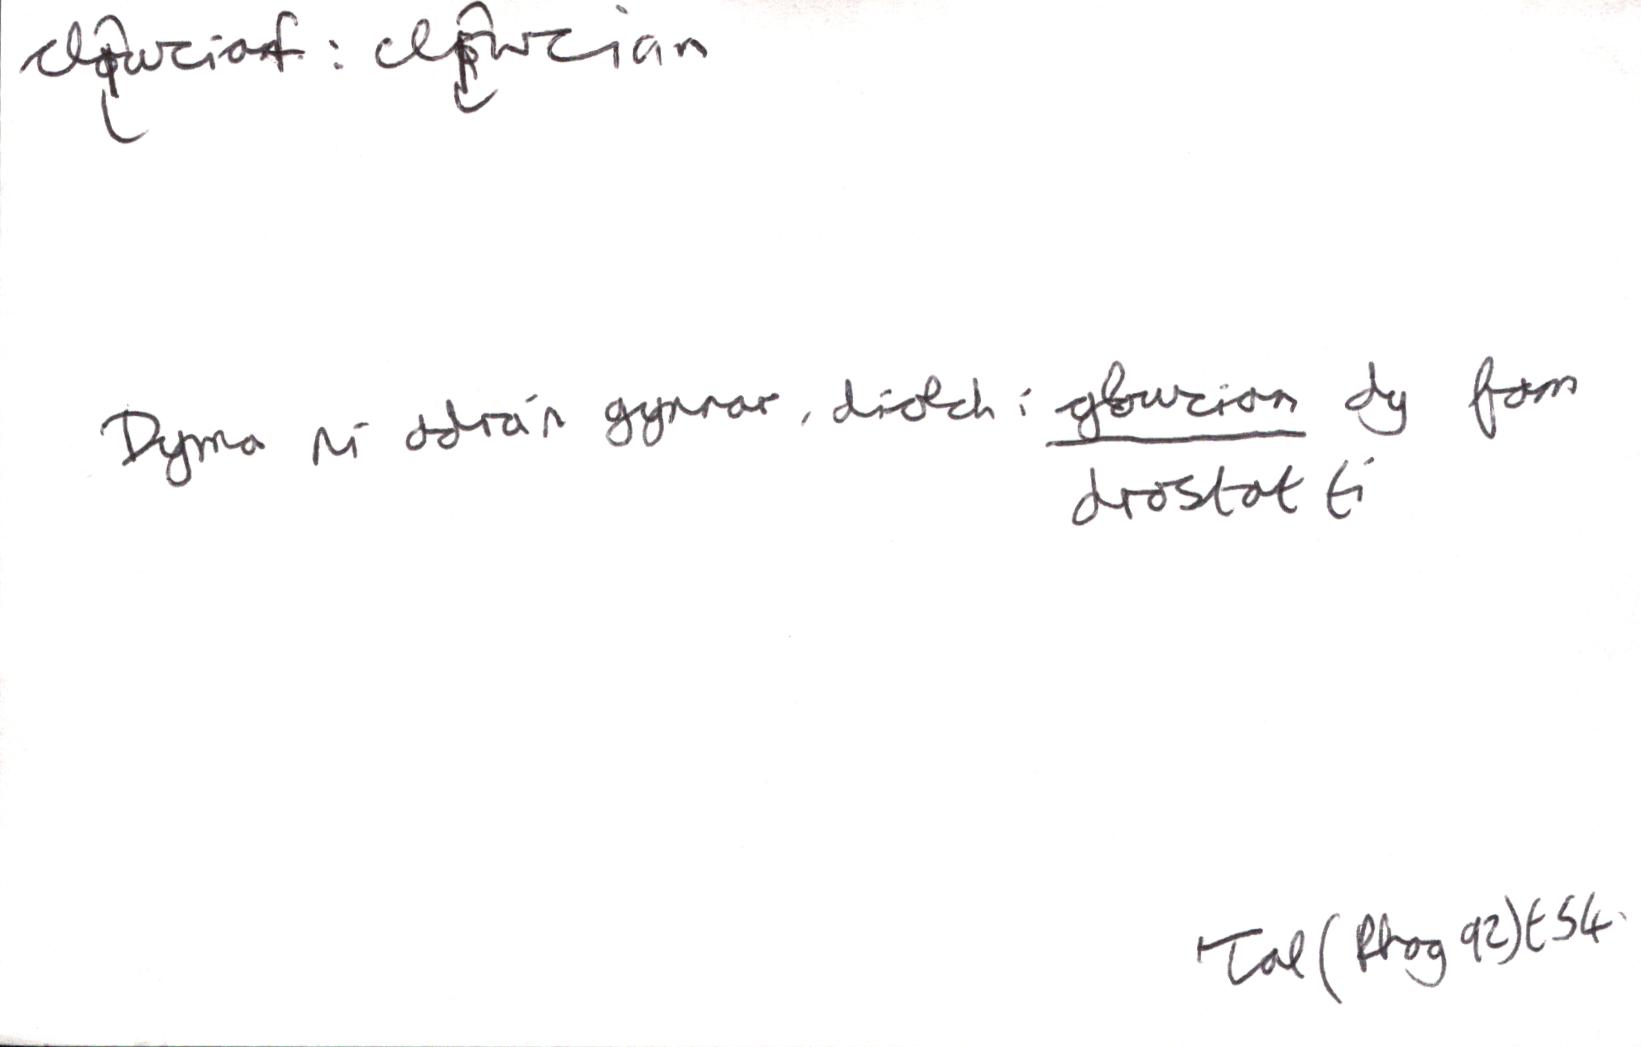 clowciaf : clowcian
Dyma ni adra'n gynnar, diolch i glowcian dy fam
drostat ti
Tal (Rhag 92) t 54.